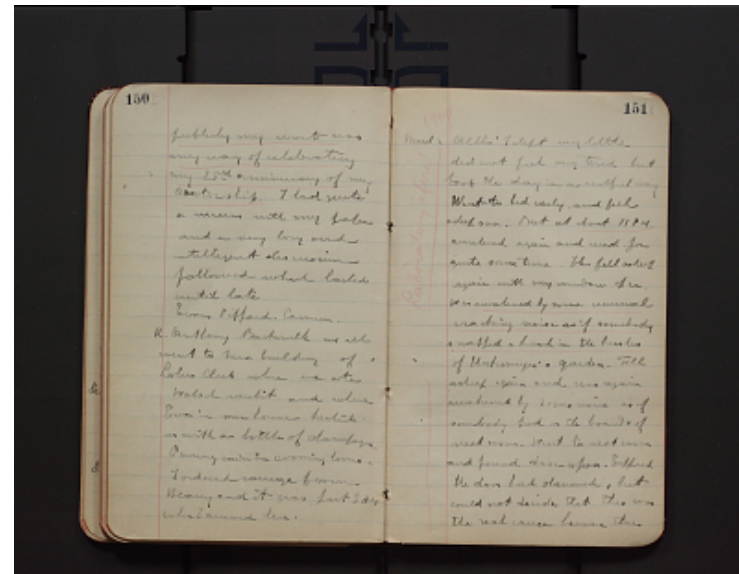 150
publicly my work was
my way of celebrating
my 25th anniversary of my
Doctorship. I had quite
a success with my paper
and a very long and
intelligent discussion
followed which lasted
until late
Evans Pifford. Cannon.
Anthony as all
went to new building of
Lotos Club when we ate
Walsh and when
Eva in our honor
us with a bottle of champagne
evening
I ordered carriage from
and it was past 2 a.m.
when I arrived here.
151
Although I slept very little
did not feel very tired but
took the day in a restful way
Went to bed early, and fell
asleep soon. But at about 12 P.M.
awakened again and read for
quite some time. Then fell asleep
again with my window open.
Was awakened by some unusual
cracking noise as if somebody
snapped a branch in the bushes
of Untermyer's garden. Fell
asleep again and was again
awakened by some noise as if
somebody trod on the boards of
next room. Went to next room
and found door open. Supposed
the door had slammed, but
could not decide that this was
the real cause because the